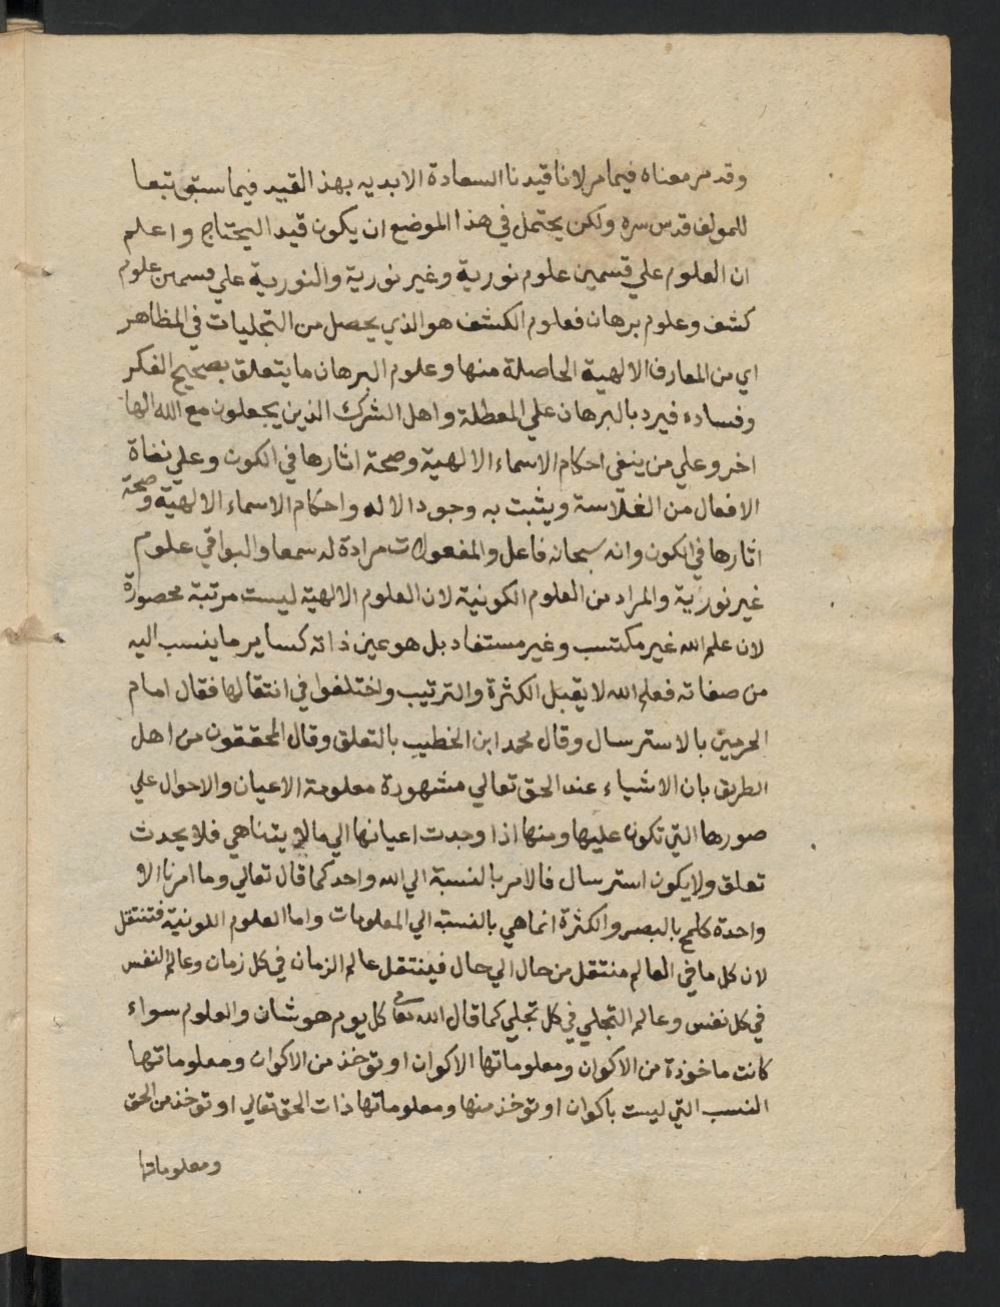 وقد مر معناه فيما مر لانا قيدنا السعادة الابديه بهذ القيد فيما سبق تبعا
للمولف قدس سره ولكن يحتمل في هذا الموضع ان يكون قيد اليحتاج واعلم
ان العلوم علي قسمين علوم نورية وغير نورية والنورية علي قسمين علوم
كشف وعلوم برهان فعلوم الكشف هو الذي يحصل من التجليات في المظاهر
اي من المعارف الالهية الحاصلة منها وعلوم البرهان ما يتعلق بصحيح الفكر
وفساده فيرد بالبرهان علي المعطلة واهل الشرك الذين يجعلون مع الله الها
اخر وعلي من ينفي احكام الاسماء الالهية وصحة اثارها في الكون وعلي نفاة
الافعال من الفلاسة ويثبت به وجود الاله واحكام الاسماء الالهية وصحة
اثارها في الكون وانه سبحانه فاعل والمفعولات مرادة له سمعا والبواقي علوم
غير نورية والمراد من العلوم الكونية لان العلوم الالهية ليست مرتبة محصورة
لان علم الله غير مكتسب وغير مستفاد بل هو عين ذاته كساير ما ينسب اليه
من صفاته فعلم الله لا يقبل الكثرة والترتيب واختلفوا في انتقالها فقال امام
الحرمين بالاسترسال وقال محمد ابن الخطيب بالتعلق وقال المحققون من اهل
الطريق بان الاشياء عند الحق تعالي مشهودة معلومة الاعيان والاحوال علي
صورها التي تكون عليها ومنها اذا وجدت اعيانها الي ما لا يتناهي فلا يحدث
تعلق ولا يكون استرسال فالامر بالنسبة الي الله واحد كما قال تعالي وما امرنا الا
واحدة كلمح بالبصر والكثرة انما هي بالنسبة الي المعلومات واما العلوم الكونية فتنتقل
لان كل ما في العالم منتقل من حال الي حال فينتقل عالم الزمان في كل زمان وعالم النفس
في كل نفس وعالم التجلي في كل تجلي كما قال الله تعالى كل يوم هو شان والعلوم سواء
كانت ماخوذة من الاكوان ومعلوماتها الاكوان او توخذ من الاكوان ومعلوماتها
النسب التي ليست باكوان او توخذ منها ومعلوماتها ذات الحق تعالي او توخذ من الحق
ومعلوماتها